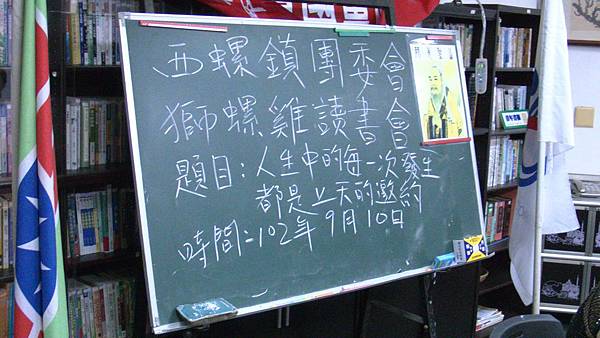 西螺鎮團委會
獅螺雞讀書會
題目：人生中的每一次發生
都是上天的邀約
時間：102年9月10日